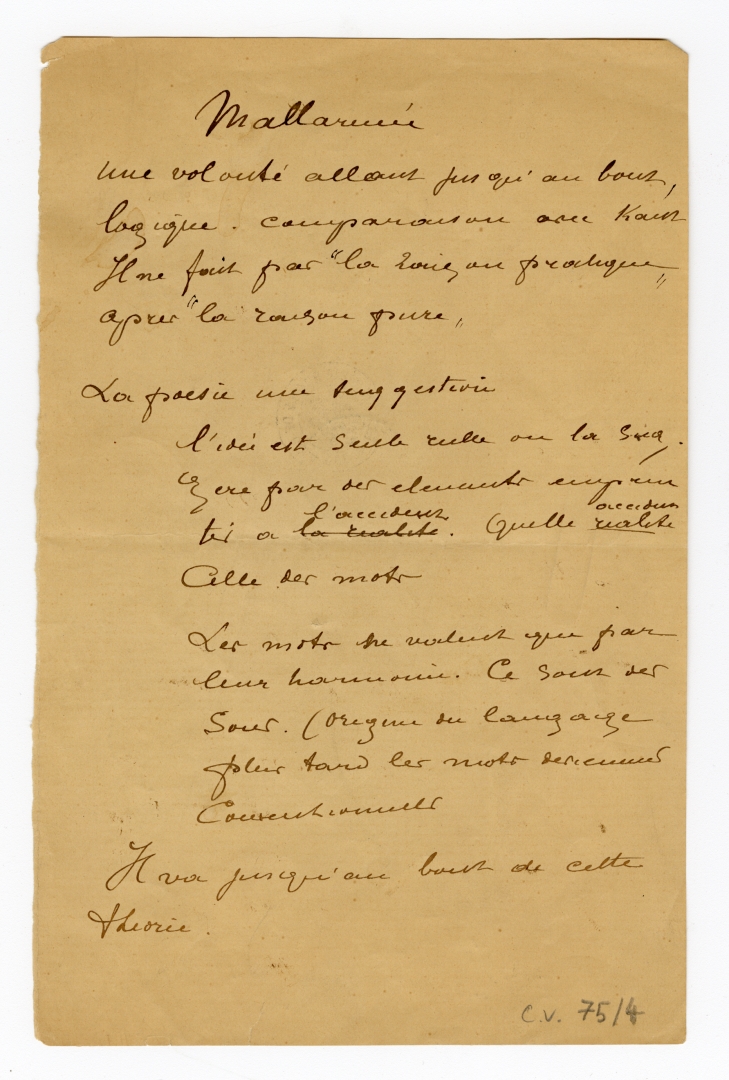 Mallarmée
une volonté allant jusqu'au bout,
logique. comparaison avec Kant
Il ne fait pas "la raison pratique"
après "la raison pure"
La poésie une suggestion
l'idée est seule réelle on la sug,
gère par des elements emprun
l'accident accident
tés a la realité. Quelle realité
Celle des mots
Les mots ne valent que par
leur harmonie. Ce sont des
sons. (Origine du langage
plus tard les mots deviennent
Conventionnels
Il va jusqu'au bout de cette
théorie.
C.V. 75/4